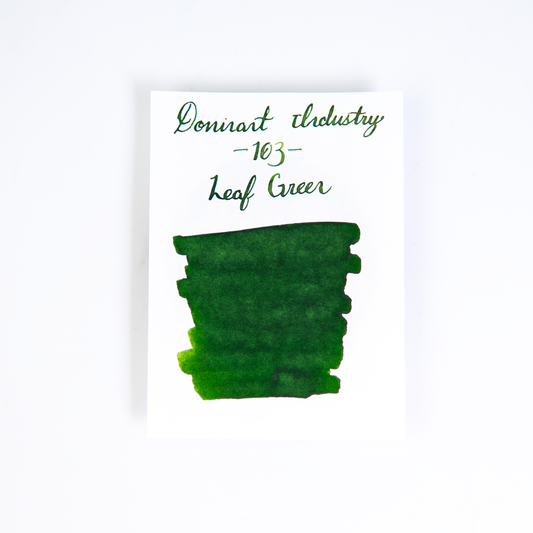 Dominant Industry
-103-
Leaf Green